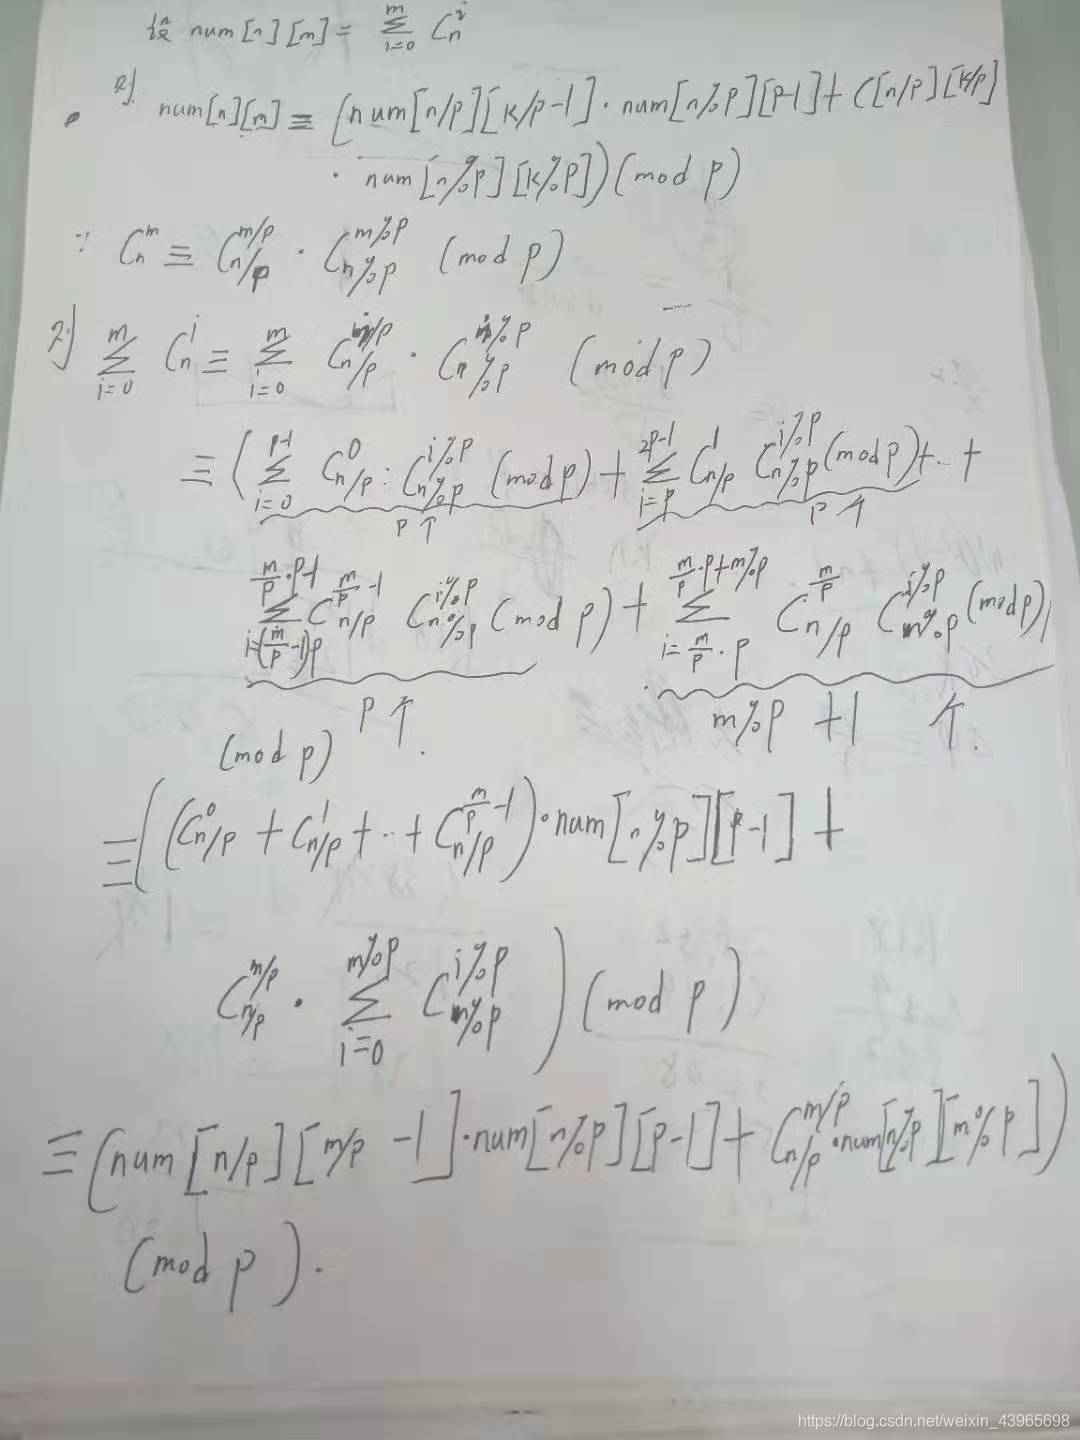 设 num[n][m] = \sum_{i=0}^{m} C_n^i
则 num[n][m] ≡ (num[n/p][k/p-1] · num[n%p][p-1] + C[n/p][k/p]
· num[n%p][k%p]) (mod p)
∵ C_n^m ≡ C_{n/p}^{m/p} · C_{n%p}^{m%p} (mod p)
则 \sum_{i=0}^{m} C_n^i ≡ \sum_{i=0}^{m} C_{n/p}^{i/p} · C_{n%p}^{i%p} (mod p)
≡ (\sum_{i=0}^{p-1} C_{n/p}^{0} · C_{n%p}^{i%p} (mod p) + \sum_{i=p}^{2p-1} C_{n/p}^{1} C_{n%p}^{i%p} (mod p) + ·· +
p个 p个
\sum_{i=(\frac{m}{p}-1)p}^{\frac{m}{p}·p-1} C_{n/p}^{\frac{m}{p}-1} C_{n%p}^{i%p} (mod p) + \sum_{i=\frac{m}{p}·p}^{\frac{m}{p}·p+m%p} C_{n/p}^{\frac{m}{p}} C_{m%p}^{i%p} (mod p))
p个. m%p +1 个.
(mod p)
≡ ((C_{n/p}^{0} + C_{n/p}^{1} + ·· + C_{n/p}^{\frac{m}{p}-1}) · num[n%p][p-1] +
C_{n/p}^{m/p} · \sum_{i=0}^{m%p} C_{m%p}^{i%p}) (mod p)
≡ (num[n/p][m/p -1] · num[n%p][p-1] + C_{n/p}^{m/p} · num[n%p][m%p])
(mod p).
https://blog.csdn.net/weixin_43965698